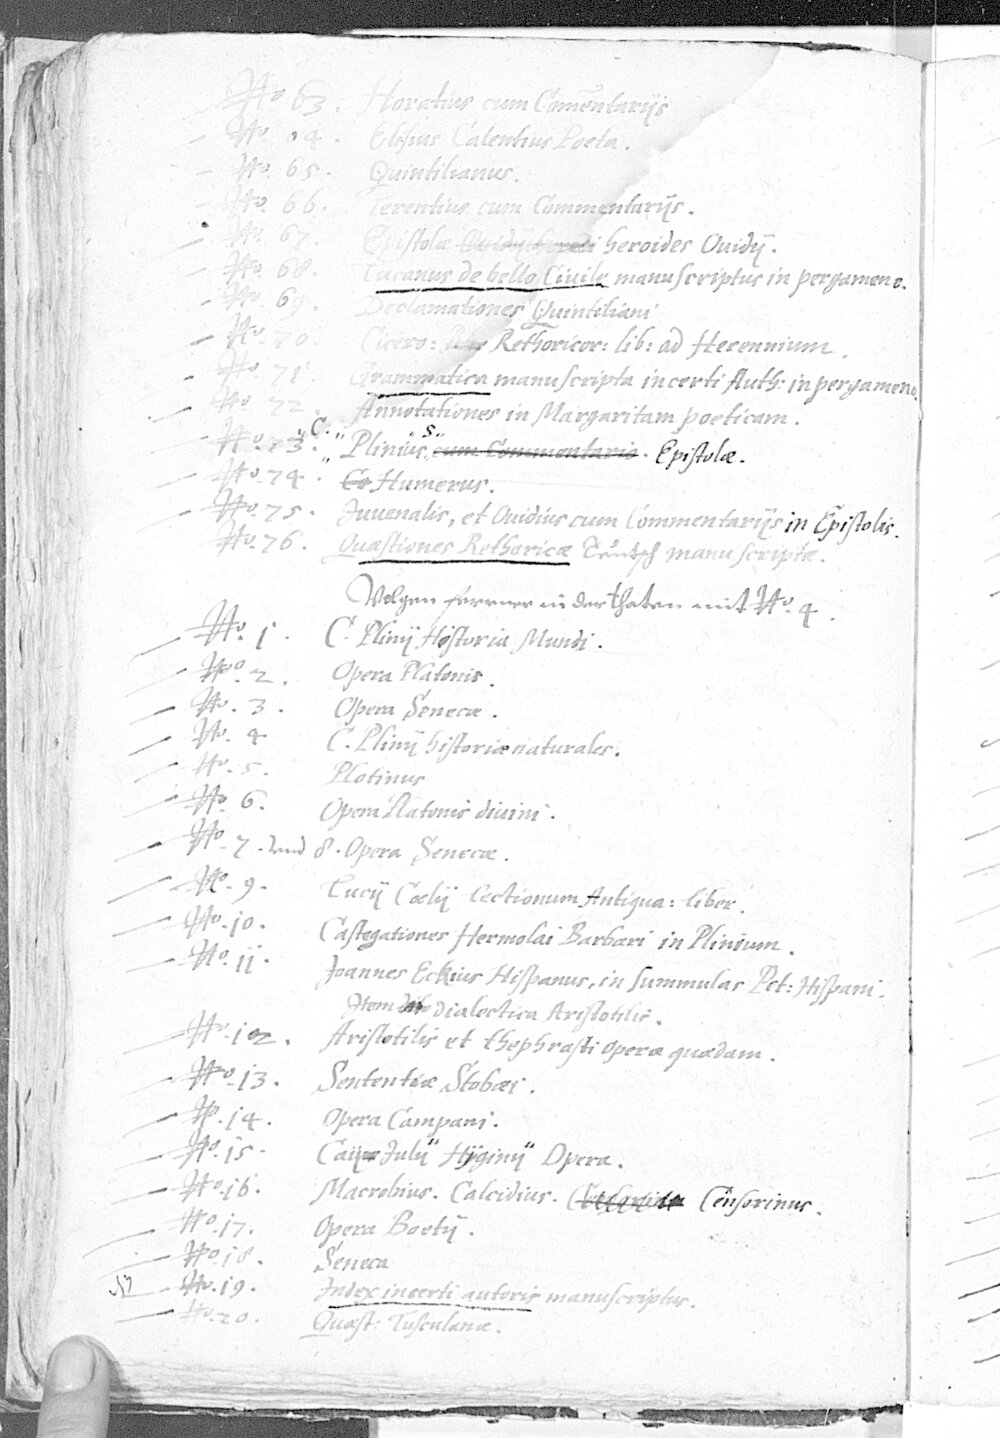 No 63. Horatius cum Comentarijs
No. 64. Elisius Calentius Poeta.
No. 65. Quintilianus.
No. 66. Terentius cum Commentarijs.
No. 67. Epistolæ heroides Ouidij.
No. 68. Lucanus de bello Ciuile manuscriptus in pergameno.
No. 69. Declamationes Quintiliani
No. 70. Cicero: Rethoricor: lib: ad Herennium.
No. 71. Grammatica manuscripta incerti Auth: in pergameno.
No. 72. Annotationes in Margaritam poeticam.
No. 73. C. Plinius S. cum Commentario. Epistolæ.
No. 74. Co Humerus.
No. 75. Juuenalis, et Ouidius cum Commentarijs in Epistolis.
No. 76. Quæstiones Rethoricæ Teutsch manuscriptæ.
Volgen ferrner in der thaten mit No. 4.
No. 1. C. Plinij Historia Mundi.
No. 2. Opera Platonis.
No. 3. Opera Senecæ.
No. 4 C. Plinij historiæ naturales.
No. 5. Plotinus
No. 6. Opera Platonis diuini.
No. 7. vnd 8. Opera Senecæ.
No. 9. Lucij Cœlij Lectionum Antiqua: liber.
No. 10. Castegationes Hermolai Barbari in Plinium.
No. 11. Joannes Eckius Hispanus, in summulas Pet: Hispani.
Item dialectica Aristotilis.
No. 102. Aristotilis et thephrasti opera quædam.
No. 13. Sententiæ Stobæi.
No. 14. Opera Campani.
No. 15. Caij Julij Hijginij Opera.
No. 16. Macrobius. Calcidius. Censorinus.
No. 17. Opera Boetij.
No. 18. Seneca
No. 19. Index incerti autoris manuscriptus.
No. 20. Quæst: Tusculanæ.